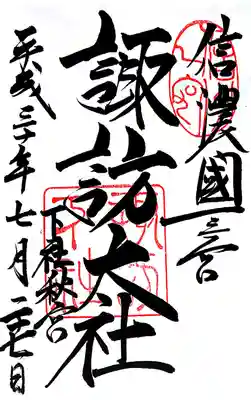 信濃國一宮
諏訪大社
下社秋宮
平成三十年七月二十七日